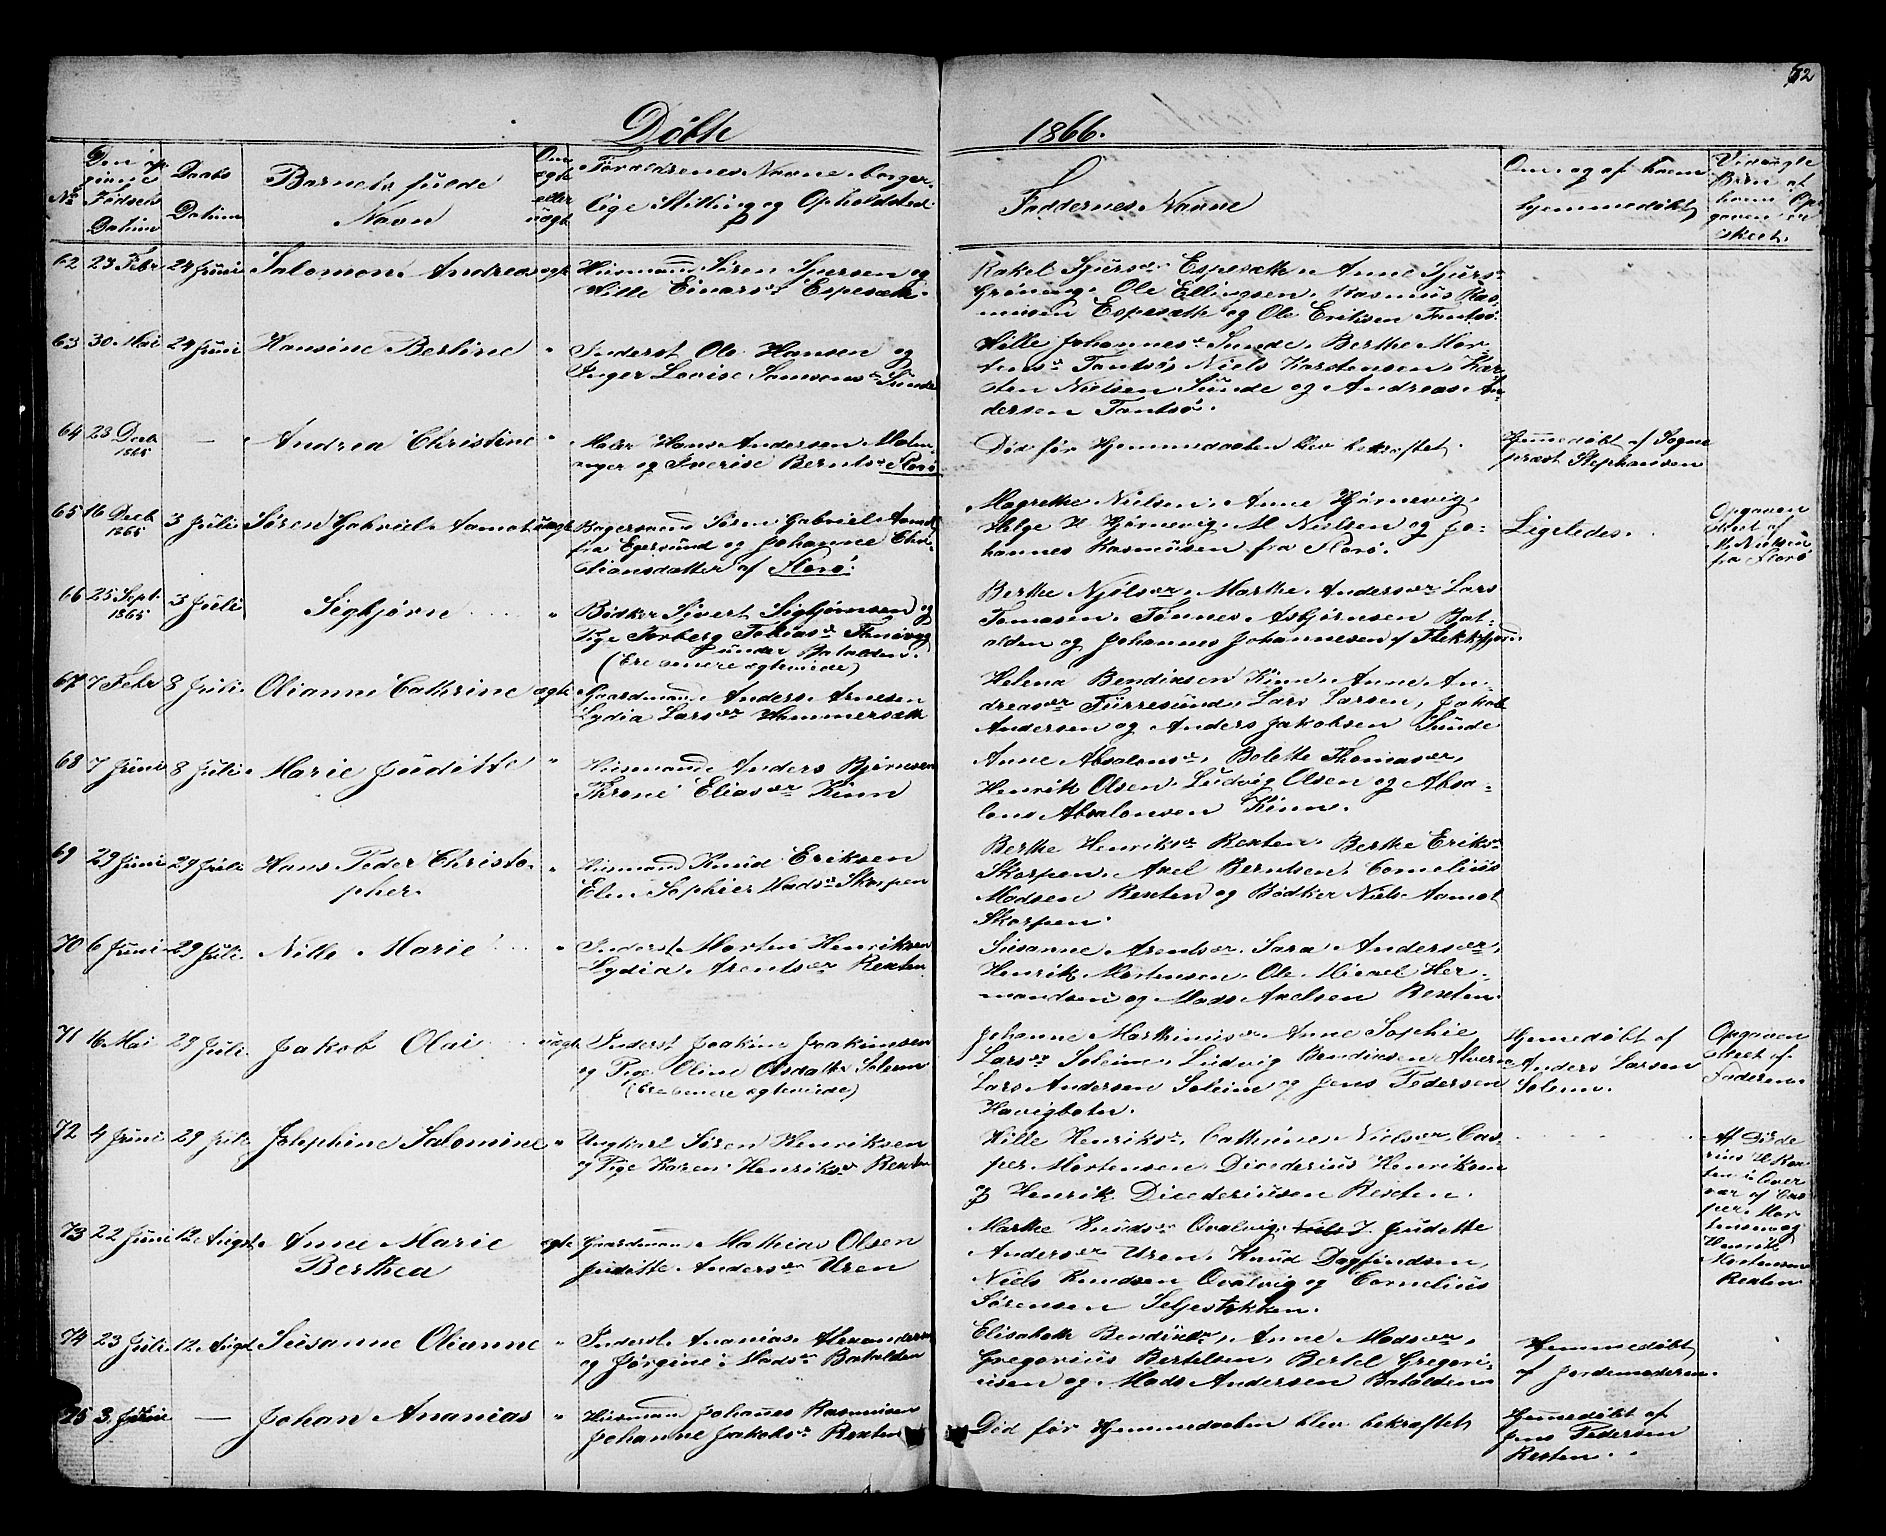 72
Döbte 1866.
No
Den op
givne
Fødsels
Datum
Daabs
Datum
Barnets fulde
Navn
Om
ægte
eller
uægte
Forældrenes Navne, borger-
lige Stilling og Opholdsted
Faddernes Navne
Om og af hvem
hjemmedøbt
Ved uægte
Børn af
hvem Op-
gaven er
skeet.
62 23 Febr 24 Juni Salomon Andreas ægte Husmand Søren Sjursen og
Hille Einarsdr Espesæth.
Rakel Sjursdr Espesæth, Anne Sjursdr
Grönevig, Ole Ellingsen, Rasmus Ras-
musen Espesæth og Ole Eriksen Tantsø.
63 30 Mai 24 Juni Hansine Bertine " Inderst Ole Hansen og
Inger Lovise Samsonsdr Sunde
Hille Johannesdr Sunde, Berthe Mor-
tensdr Tantsø, Niels Karstensen, Kar-
sten Nielsen Sunde og Andreas An-
dersen Tantsø.
64 23 Decb
1865 — Andrea Christine " Maler Hans Andersen
og Berntsdr Florø
Død før Hjemmedaaben blev bekræftet.
Hjemmedøbt af Sogne
præst Stephansen
65 16 Decb
1865 3 Juli Søren Gabriel Aamot uægte Bagersvend Søren Gabriel Aamot
fra Egersund og Johanne Chri-
stiansdatter af Florø.
Magrethe Nielsen, Anne Hjørnevig,
Helge H Hjørnevig, M Nielsen og Jo-
hannes Rasmusen fra Florø.
Ligeledes.
Opgaven
skeet af
M. Nielsen
fra Florø
66 25 Sept.
1865 3 Juli Sigbjørn " Bødker Sivert Sigbjørnsen og
Pige Torberg Tobiasdr
under Batalden.
(Ere senere ægteviede)
Berthe Njølsdr, Marthe Andersdr, Lars
Tomasen, Tønnes Asbjørnsen Bat-
alden og Johannes Johannesen af Flekkefjord.
67 7 Febr 8 Juli Olianne Cathrine ægte Gaardmand Anders Arnesen
Lydia Larsdr Hammersæth
Helena Bendixsen Kinn, Anne An-
dreasdr Furresund, Lars Larsen, Jakob
Andersen og Anders Jakobsen Sunde
68 7 Juni 8 Juli Marie Juditte " Husmand Anders Bjørnsen
Throne Eliasdr Kinn
Anne Absalonsdr, Bolette Thomasdr,
Henrik Olsen, Ludvig Olsen og Absa-
lons Absalonsen Kinn.
69 29 Juni 29 Juli Hans Peder Christo-
pher. " Husmand Knud Eriksen
Elen Sophie Madsdr Skorpen
Berthe Henriksdr Rexten, Berthe Eriksdr
Skorpen, Axel Berntsen, Cornelius
Madsen Rexten og Bødker Niels Aamot
Skorpen.
70 6 Juni 29 Juli Nille Marie " Inderst Morten Henriksen
Lydia Arentsdr Rexten
Susanne Arentsdr, Sara Andersdr,
Henrik Mortensen, Ole Mikael Her-
mandsen og Mads Axelsen Rexten.
71 16 Mai 29 Juli Jakob Olai uægte Inderst Joakim Joakimsen
og Pige Oline Olsdatter Soleim
(Ere senere ægteviede)
Johanne Marthinusdr, Anne Sophie
Larsdr Soleim, Ludvig Bendixsen Alvere
Lars Andersen Soleim og Jens Pedersen
Havigboten.
Hjemmedøbt af
Anders Larsen
Soleim.
Opgaven
skeet af
Faderen
72 4 Juni 29 Juli Josephine Salomine " Ungkarl Søren Henriksen
og Pige Karen Henriksdr Rexten
Hille Henriksdr, Cathrine Nielsdr, Cas-
per Mortensen, Diederius Henriksen
og Henrik Diederiusen Rexten.
Af Diede
rius H Rex-
ten i Over
vær af Cas-
per Mor-
tensen og
Henrik
Mortensen
Rexten
73 22 Juni 12 Augst. Anne Marie
Berthea ægte Gaardmand Mathias Olsen
Juditte Andersdr Uren
Marthe Knudsdr Qvalvig, Juditte
Andersdr Uren, Knud Dagfindsen,
Niels Knudsen Qvalvig og Cornelius
Sørensen Seljestokken.
74 23 Juli 12 Augst Susanne Olianne " Inderst Ananias Alexandersen
og Jørgine Madsdr Batalden
Elisabeth Bendixdr, Anne Madsdr,
Gregorius Bertelsen, Bertel Gregori-
usen og Mads Andersen Batalden
Hjemmedøbt
af Jordemoderen.
75 3 Juni — Johan Ananias " Husmand Johannes Rasmusen
Johanne Jakobsdr Rexten
Død før Hjemmedaaben blev bekræftet
Hjemmedøbt af
Jens Pedersen
Rexten.